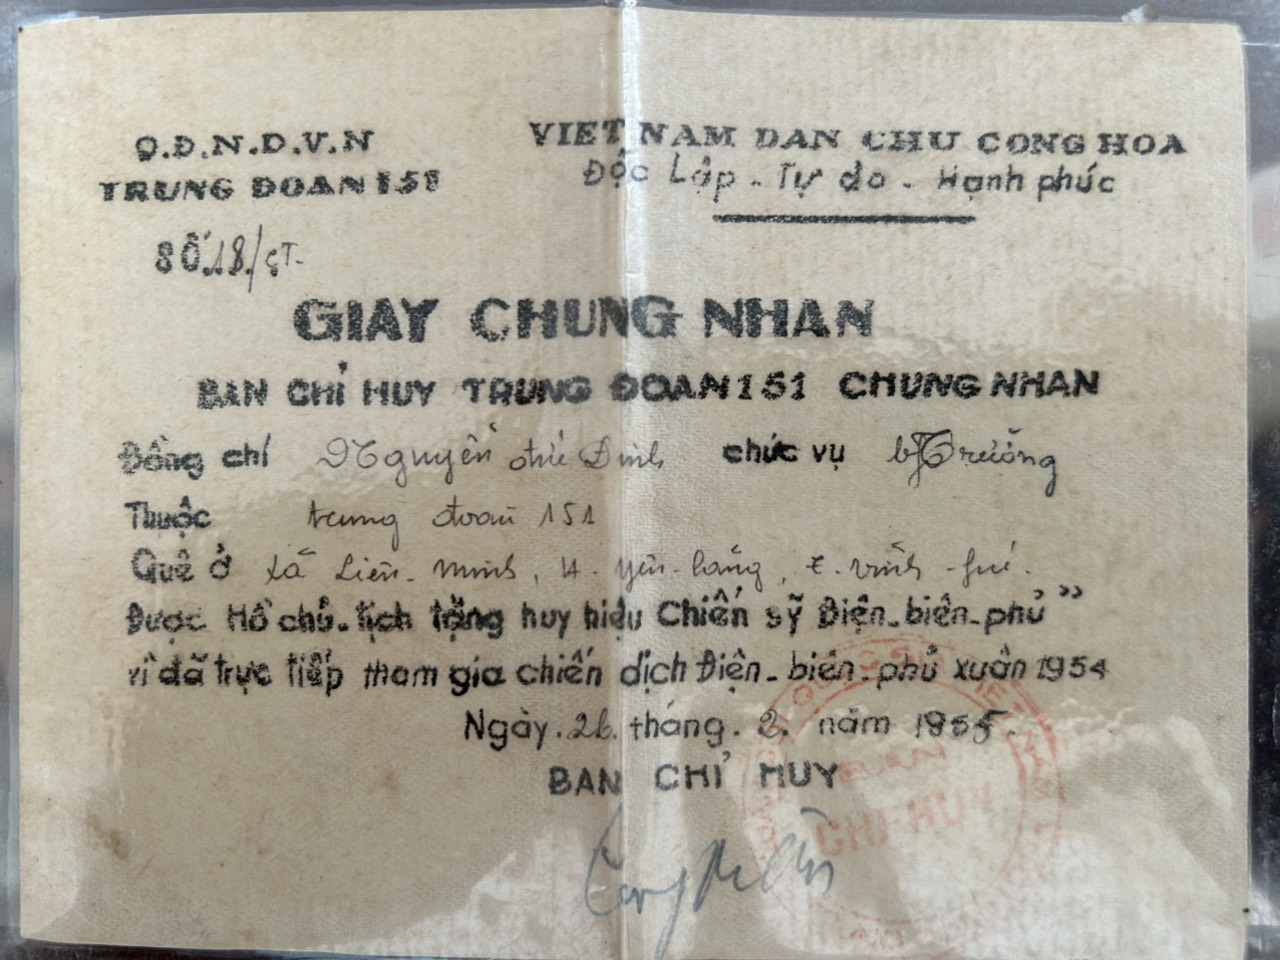 Q.Đ.N.D.V.N
TRUNG ĐOAN 151
VIET NAM DAN CHU CONG HOA
Độc Lập - Tự do - Hạnh phúc
Số 18/CT-
GIAY CHUNG NHAN
BAN CHỈ HUY TRUNG ĐOAN 151 CHUNG NHAN
Đồng chí Nguyễn Đình chức vụ Trưởng
Thuộc trung đoàn 151
Quê ở xã Liên-minh, H. Yên-lãng, T. Vĩnh-fú.
Được Hồ chủ-tịch tặng huy hiệu Chiến sỹ Điện-biên-phủ”
vì đã trực tiếp tham gia chiến dịch Điện-biên-phủ xuân 1954
Ngày.26.tháng.2. năm 1955.
BAN CHỈ HUY
BAN
CHI-HUY